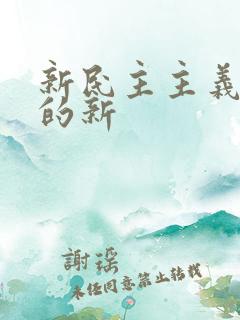 新民主主義
的新
謝瑶
未经同意禁止转载